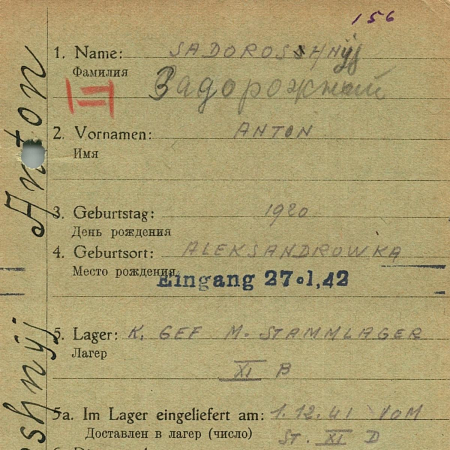 156
1. Name: SADOROSSHNYJ
Фамилия Задорожний
2. Vornamen: ANTON
Имя
3. Geburtstag: 1920
День рождения
4. Geburtsort: ALEKSANDROWKA
Место рождения
Eingang 27.1.42
5. Lager: K. GEF M. STAMMLAGER
Лагер
XI B
5a. Im Lager eingeliefert am: 1.12.41 VOM
Доставлен в лагер (число) ST. XI D
Anton